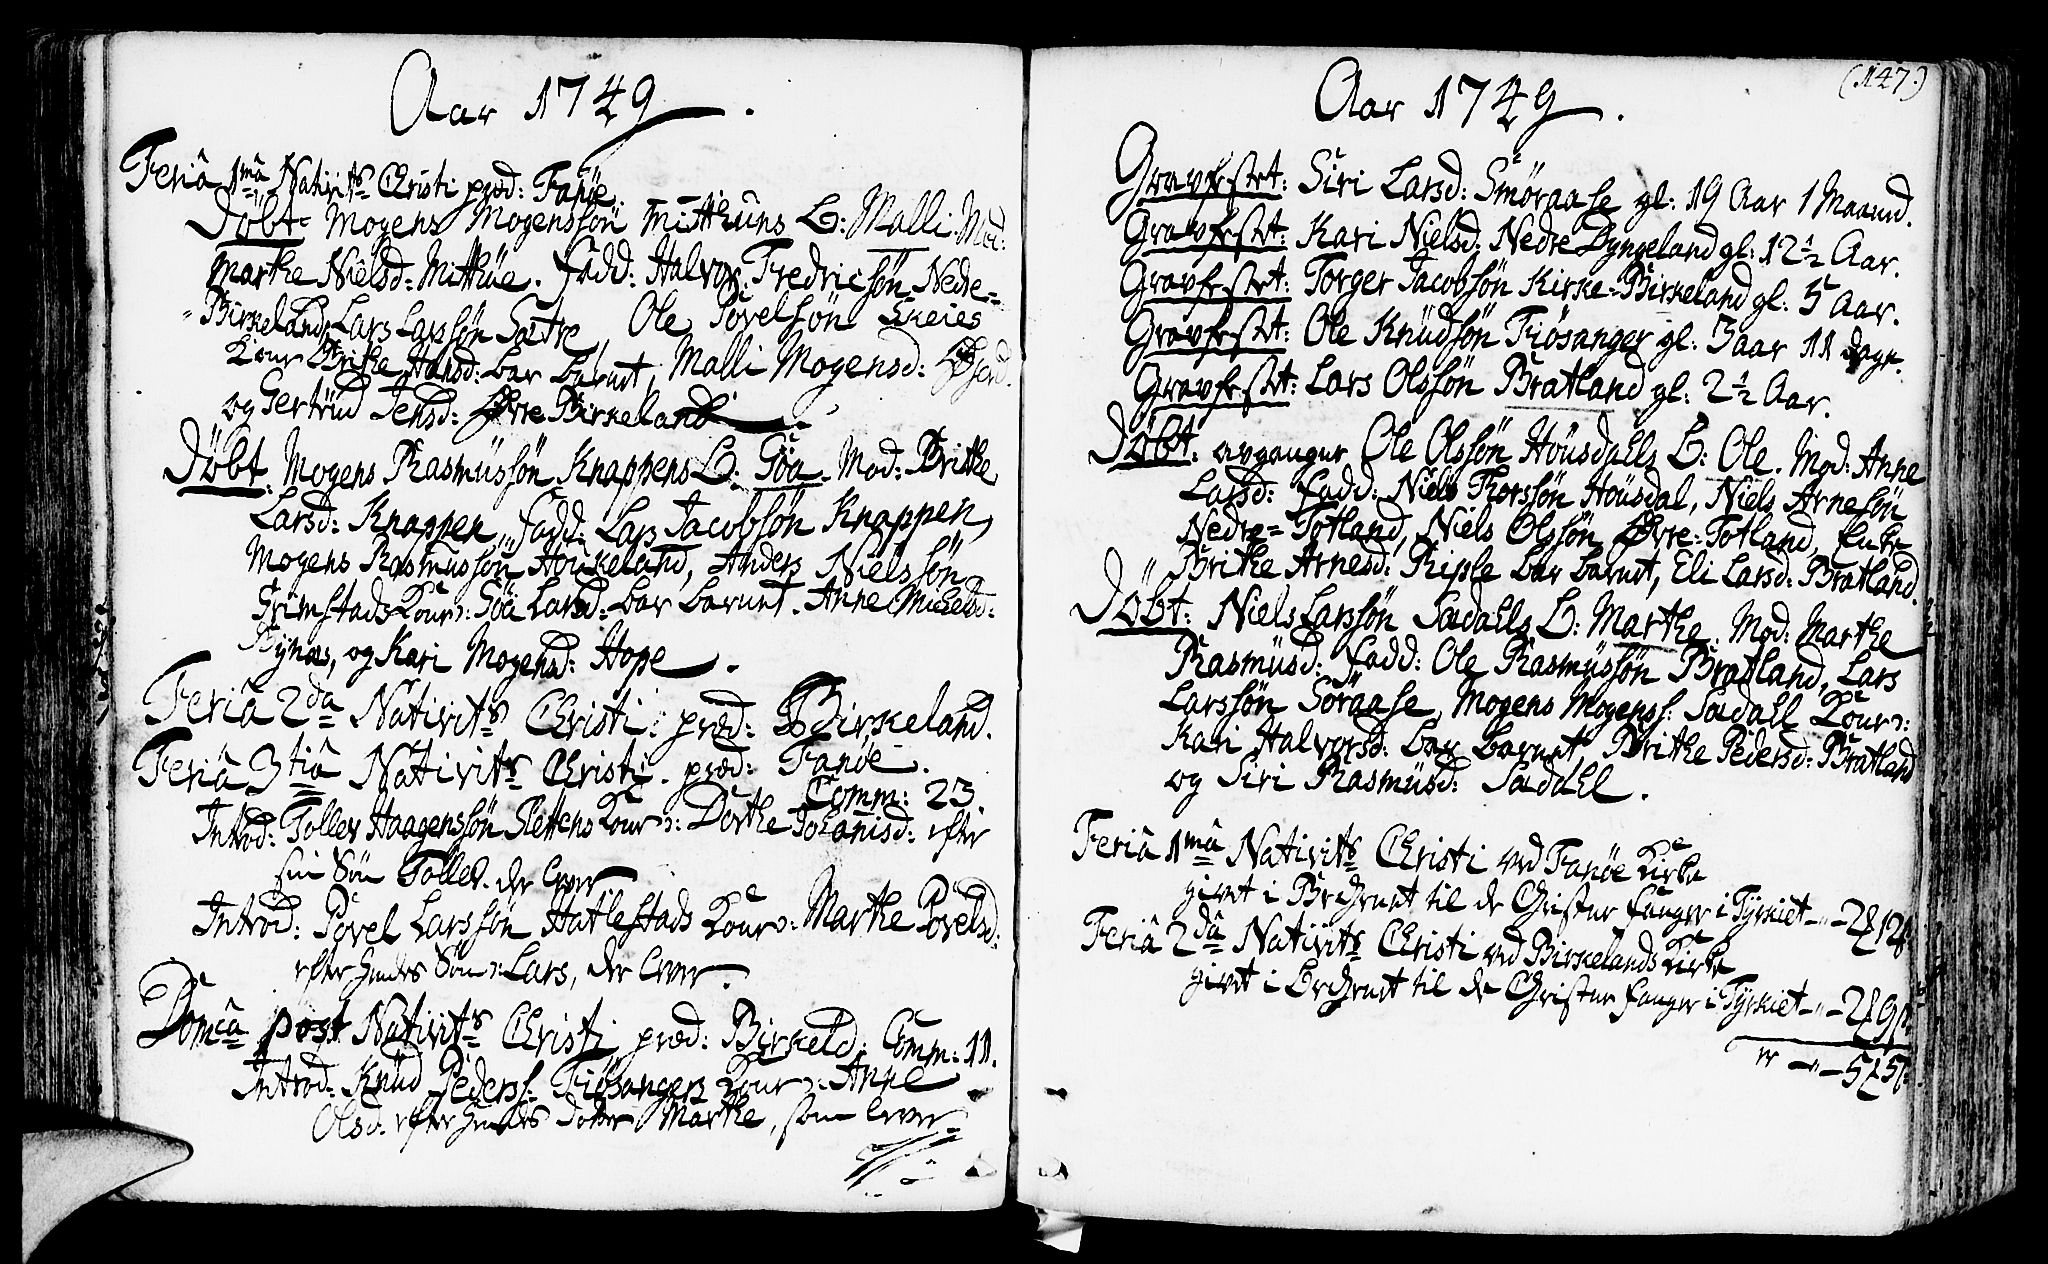 Aar 1749.
Feriâ 1mâ Nativits Christi præd: Fanöe.
Döbt: Mogens Mogenssön Mitthuns B: Malli. Mod:
Marthe Nielsd: Mitthüe. Fadd: Halvor Fredricsön Nedre=
Birkeland, Lars Larssön Sætre, Ole Povelsön Skeies
Koner Brithe Hansd: bar barnet, Malli Mogensd:
og Gertrüd Jensd: Øvre Birkeland.
Döbt. Mogens Rasmüssön Knappens B: Göa. Mod: Brithe
Larsd: Knappen, Fadd: Lars Jacobsön Knappen,
Mogens Rasmussön Houkeland, Anders Nielssön
Grimstads Kone: Göa Larsd: bar barnet. Anne Michelsd:
Bynæs, og Kari Mogensd: Hope.
Feriâ 2da Nativits Christi. præd: Birkeland.
Feriâ 3tiâ Nativits Christi. præd: Fanöe.
Comm: 23.
Introd: Tollev Haagenssön Slettens Kone: Dorthe Johanisd: efter
sin Sön Tollev. der lever
Introd: Povel Larssön Hatlestads Kone: Marthe Povelsd:
efter hendes Sön: Lars, der lever.
Domca post Nativits Christi præd: Birkeld: Comm: 11.
Introd: Knüd Pederss: Fiösangers Kone: Anne
Olsd: efter hendes Dotter Marthe, som lever
Aar 1749.
(147.)
Gravfestet: Siri Larsd: Smöraase gl: 19 Aar 1 Maaned.
Gravfestet: Kari Nielsd: Nedre Dyngeland gl: 12½ Aar.
Gravfestet: Torger Jacobsön Kirke=Birkeland gl: 5 Aar.
Gravfestet: Ole Knüdsön Fiösanger gl: 3 aar 11 dage.
Gravfestet: Lars Olssön Bratland gl: 2½ Aar.
Döbt: avgangne Ole Olssön Höusdahls B: Ole. Mod: Anne
Larsd: Fadd: Niels Thorssön Höusdal, Niels Arnesön
Nedre=Totland, Niels Olssön Øvre=Totland, Enke
Brithe Arnesd: Riple bar barnet, Eli Larsd: Bratland.
Döbt: Niels Larssön Sædahls B: Marthe. Mod: Marthe
Rasmüsd: Fadd: Ole Rasmüssön Bratland, Lars
Larssön Söraase, Mogens Mogenss: Sædahl Kone:
Kari Halvorsd: bar barnet, Brithe Pedersd: Bratland
og Siri Rasmüsd: Sædahl.
Feriâ 1mâ Nativits Christi ved Fanöe Kirke
givet i Becknet til de Christne fanger i Tyrkiet
Feriâ 2dâ Nativits Christi ved Birkelands Kirke
givet i Becknet til de Christne fanger i Tyrkiet